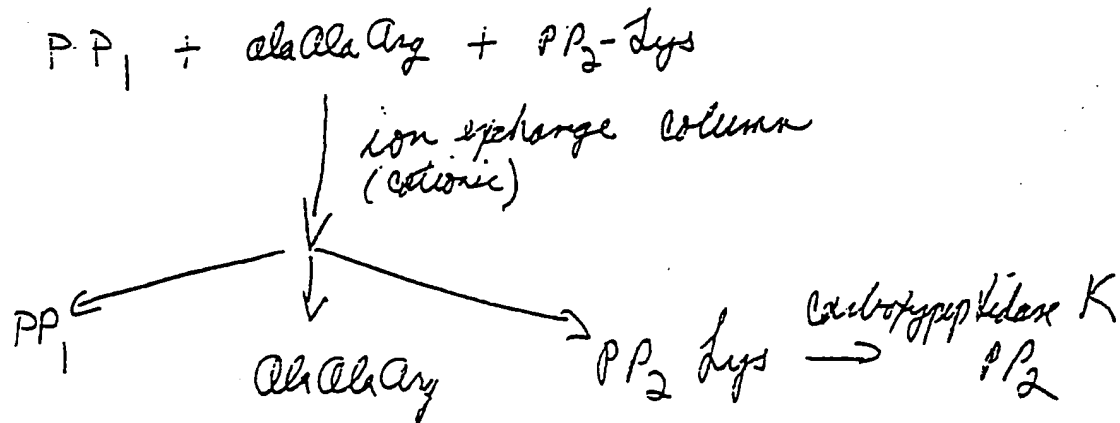 PP₁ + AlaAlaArg + PP₂-Lys
ion exchange column
(cationic)
PP₁
AlaAlaArg
PP₂ Lys
Carboxypeptidase K
PP₂